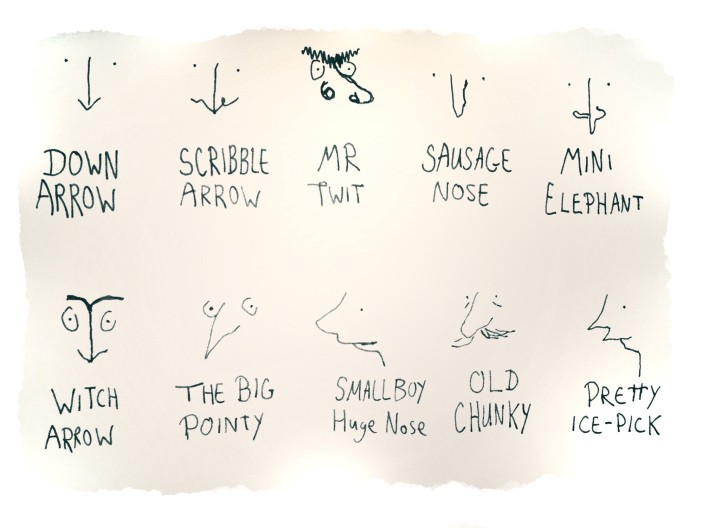 DOWN
ARROW
SCRIBBLE
ARROW
MR
TWIT
SAUSAGE
NOSE
MINI
ELEPHANT
WITCH
ARROW
THE BIG
POINTY
SMALLBOY
Huge Nose
OLD
CHUNKY
PRETTY
ICE-PICK